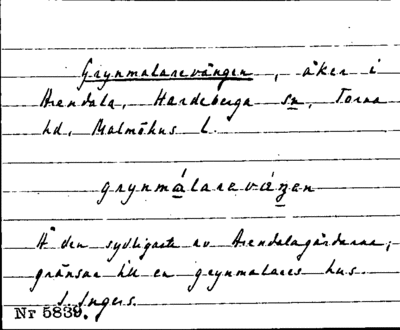 Grynmalarevången, åker i
Arendala, Hardeberga sn, Torna
hd, Malmöhus l.
grynmálarevæŋen
Å den sydligaste av Arendalagårdarna;
gränsar till en grynmalares hus.
I. Ingers.
Nr 5839.